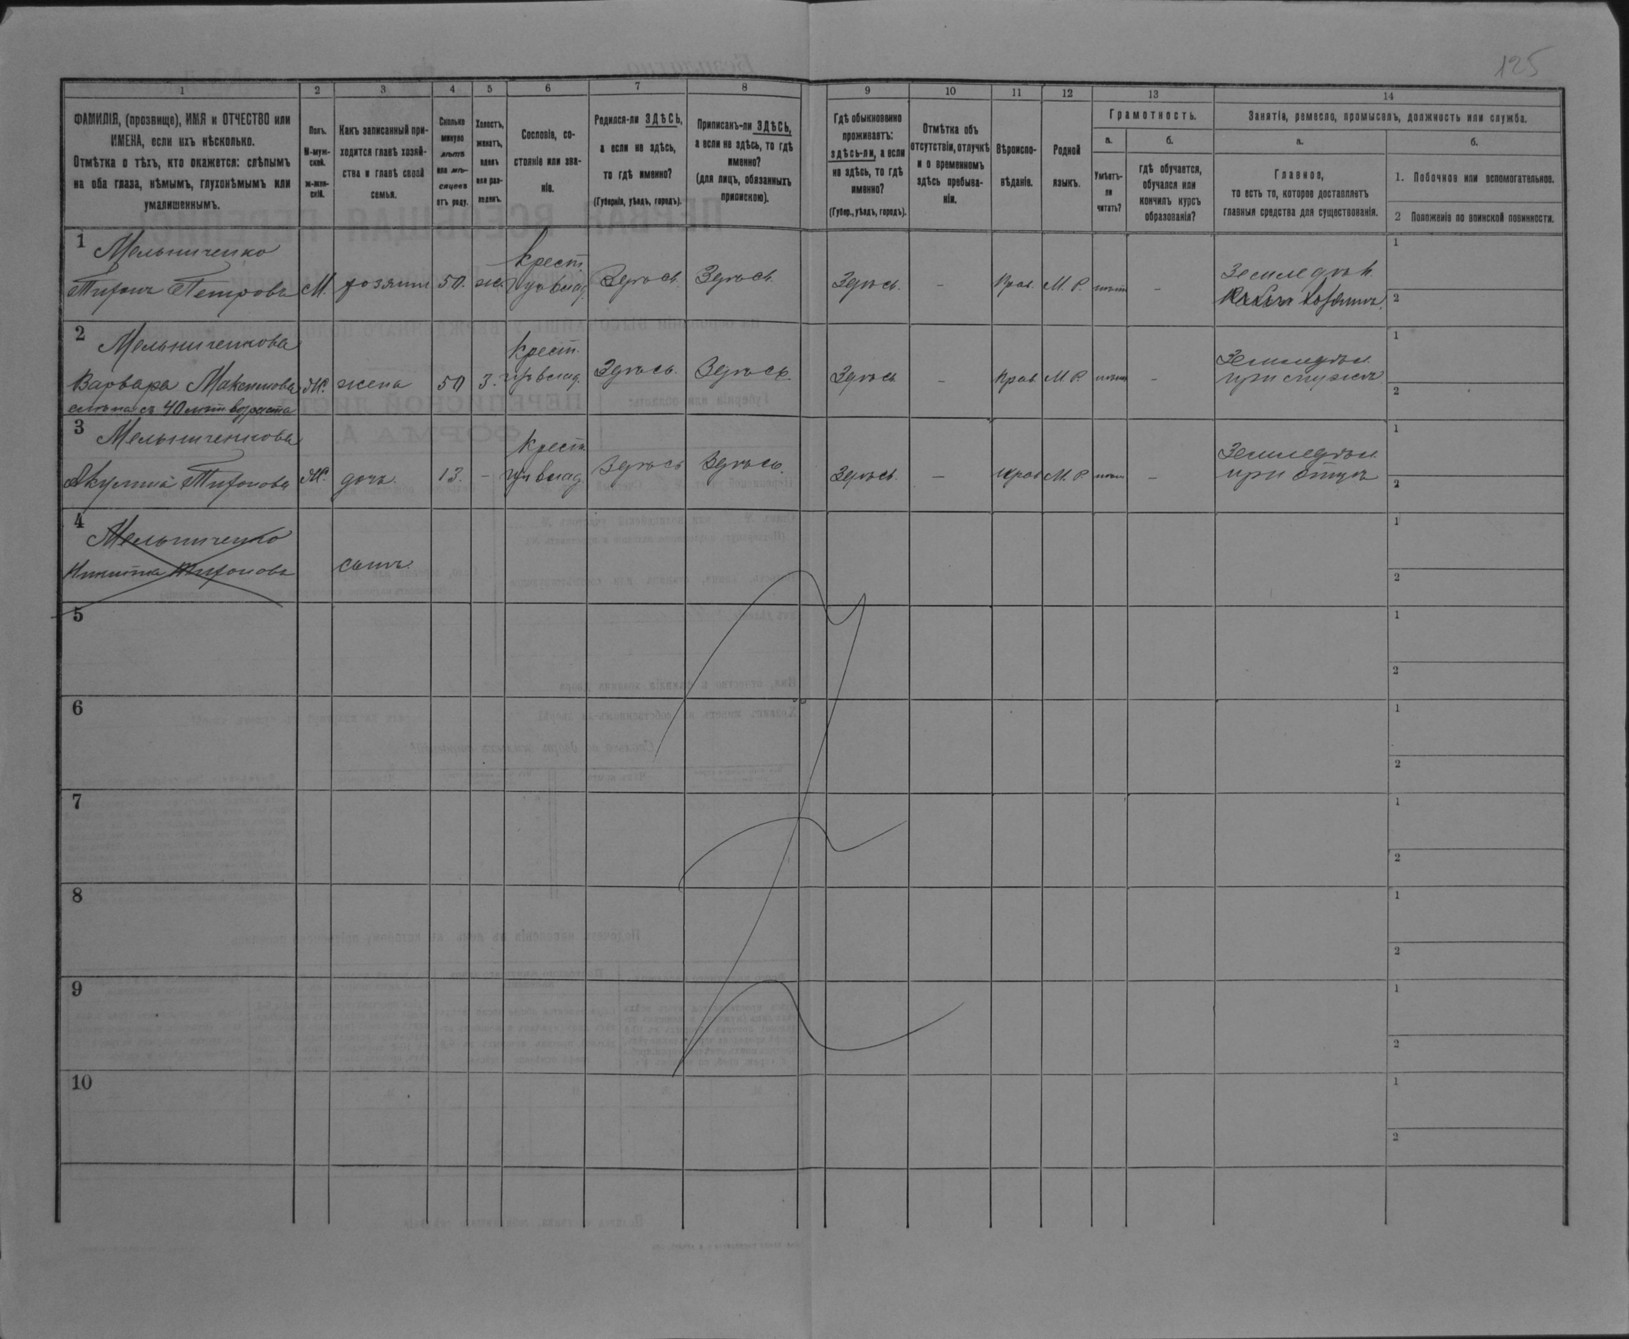 125
1 2 3 4 5 6 7 8 9 10 11 12 13 14
ФАМИЛІЯ, (прозвище), ИМЯ и ОТЧЕСТВО или
ИМЕНА, если ихъ нѣсколько.
Отмѣтка о тѣхъ, кто окажется: слѣпымъ
на оба глаза, нѣмымъ, глухонѣмымъ или
умалишеннымъ.
Полъ.
М-муж-
ской.
Ж-жен-
скій.
Какъ записанный при-
ходится главѣ хозяй-
ства и главѣ своей
семьи.
Сколько
минуло
лѣтъ
или мѣ-
сяцевъ
отъ роду.
Холостъ,
женатъ,
вдовъ
или раз-
веденъ.
Сословіе, со-
стояніе или зва-
ніе.
Родился-ли ЗДѢСЬ,
а если не здѣсь,
то гдѣ именно?
(Губернія, уѣздъ, городъ).
Приписанъ-ли ЗДѢСЬ,
а если не здѣсь, то гдѣ
именно?
(для лицъ, обязанныхъ
припискою).
Гдѣ обыкновенно
проживаетъ:
здѣсь-ли, а если
не здѣсь, то гдѣ
именно?
(Губер., уѣздъ, городъ).
Отмѣтка объ
отсутствіи, отлучкѣ
и о временномъ
здѣсь пребыва-
ніи.
Вѣроиспо-
вѣданіе.
Родной
языкъ.
Грамотность.
а.
Умѣетъ-
ли
читать?
б.
гдѣ обучается,
обучался или
кончилъ курсъ
образованія?
Занятіе, ремесло, промыселъ, должность или служба.
а.
Главное,
то есть то, которое доставляетъ
главныя средства для существованія.
б.
1. Побочное или вспомогательное.
2 Положеніе по воинской повинности.
1 Мельниченко
Тихонъ Петровъ М. хозяинъ 50. же. Здѣсь. Здѣсь. Здѣсь. – Прав. М. Р. нѣтъ –
крест.
Земледѣл.
1
2
2 Мельниченкова
Варвара Максимова Ж. жена 50 З. Здѣсь. Здѣсь. Здѣсь – Прав М. Р. нѣтъ –
слѣпа съ 40 лѣтъ возраста
Крест.
Земледѣл.
при мужѣ
1
2
3 Мельниченкова
Тихонова Ж. дочь 13. – Здѣсь Здѣсь. Здѣсь. – Прав М. Р. нѣтъ –
Крест
Земледѣл.
при отцѣ
1
2
4 Мельниченко
Никита Тихоновъ сынъ
1
2
5
1
2
6
1
2
7
1
2
8
1
2
9
1
2
10
1
2